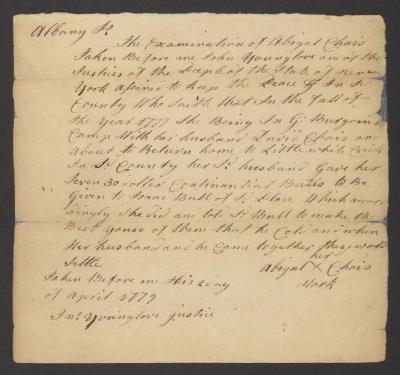 Albany Ss.
The Examination of Abigal Chais
Taken Before me John Younglove on of the
Justices of the People of the State of new
York asined to keep the Peace & In Sd
County Who saith that In the fall of
the Year 1777 She Being In Gl Burgoins
Camp With her husband and
about to Return home to Little white Crick
In Sd County her Sd husband Gave her
Seven 30 doller Continantial Bills to Be
Given to Isaac Bull of Sd Place Which accor
dingly She did and told Sd Bull to make the
Best youse of them that he Cold and when
Her husband and he Come together they would
Settle
her
Abigal X Chais
Mark
Taken Before me this day
of April 1779
Jno Younglove justice